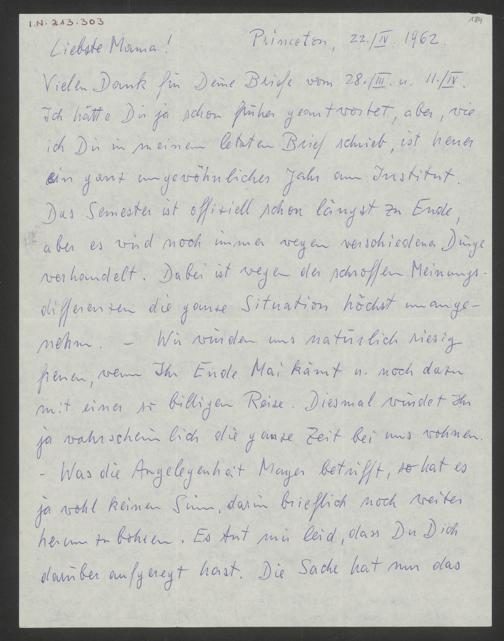 I.N. 213.303
184
Princeton, 22./IV. 1962.
Liebste Mama!
Vielen Dank für Deine Briefe vom 28./III. u. 11./IV.
Ich hätte Dir ja schon früher geantwortet, aber, wie
ich Dir in meinem letzten Brief schrieb, ist heuer
ein ganz ungewöhnliches Jahr am Institut.
Das Semester ist offiziell schon längst zu Ende,
aber es wird noch immer wegen verschiedener Dinge
verhandelt. Dabei ist wegen der schroffen Meinungs-
differenzen die ganze Situation höchst unange-
nehm. – Wir würden uns natürlich riesig
freuen, wenn Ihr Ende Mai kämt u. noch dazu
mit einer so billigen Reise. Diesmal würdet Ihr
ja wahrscheinlich die ganze Zeit bei uns wohnen.
– Was die Angelegenheit Mayer betrifft, so hat es
ja wohl keinen Sinn, darin brieflich noch weiter
herum zu bohren. Es tut mir leid, dass Du Dich
darüber aufgeregt hast. Die Sache hat nur das